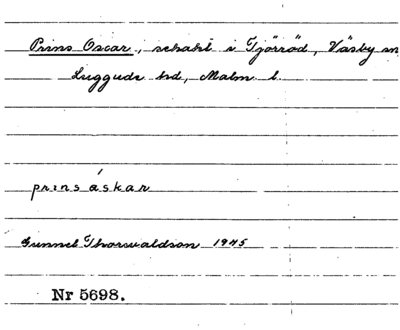 Prins Oscar, schakt i Tjörröd, Väsby sn
Luggude hd, Malm. l.
prins áskar
Gunnel Thorwaldson 1945
Nr 5698.